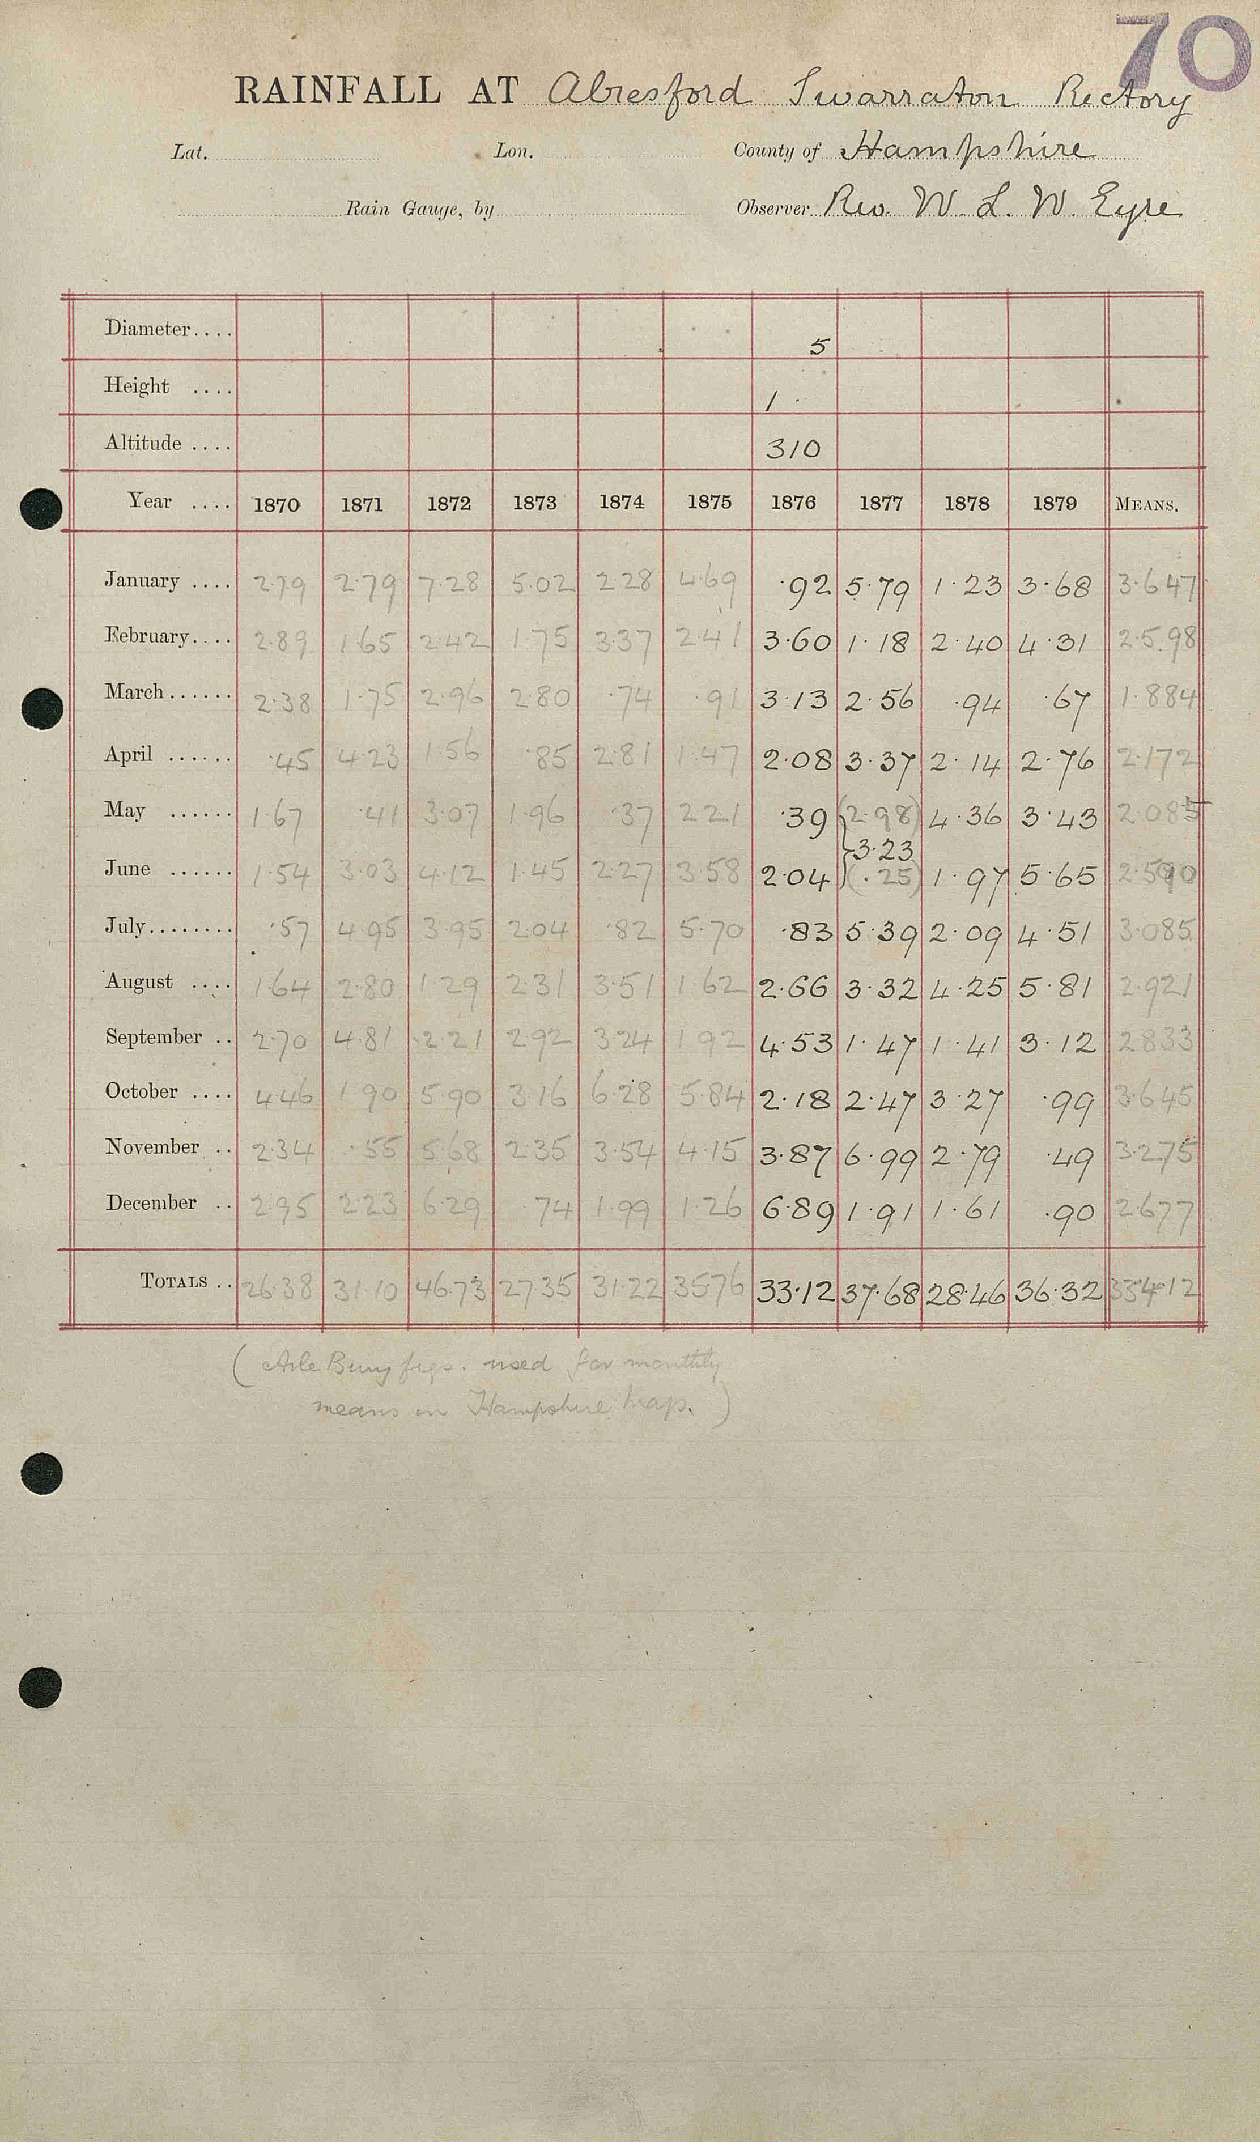 70
RAINFALL AT Alresford Swarraton Rectory
Lat. Lon. County of Hampshire
Rain Gauge, by Observer Rev. W. L. W. Eyre
Diameter.... 5
Height .... 1
Altitude .... 310
Year .... 1870 1871 1872 1873 1874 1875 1876 1877 1878 1879 MEANS.
January .... 2.79 2.79 7.28 5.02 2.28 4.69 .92 5.79 1.23 3.68 3.647
February.... 2.89 1.65 2.42 1.75 3.37 2.41 3.60 1.18 2.40 4.31 2.598
March...... 2.38 1.75 2.96 2.80 .74 .91 3.13 2.56 .94 .67 1.884
April ...... .45 4.23 1.56 .85 2.81 1.47 2.08 3.37 2.14 2.76 2.172
May ...... 1.67 .41 3.07 1.96 .37 2.21 .39 (2.98) 4.36 3.43 2.085
3.23
June ...... 1.54 3.03 4.12 1.45 2.27 3.58 2.04 (.25) 1.97 5.65 2.590
July........ .57 4.95 3.95 2.04 .82 5.70 .83 5.39 2.09 4.51 3.085
August .... 1.64 2.80 1.29 2.31 3.51 1.62 2.66 3.32 4.25 5.81 2.921
September .. 2.70 4.81 2.21 2.92 3.24 1.92 4.53 1.47 1.41 3.12 2.833
October .... 4.46 1.90 5.90 3.16 6.28 5.84 2.18 2.47 3.27 .99 3.645
November .. 2.34 .55 5.68 2.35 3.54 4.15 3.87 6.99 2.79 .49 3.275
December .. 2.95 2.23 6.29 .74 1.99 1.26 6.89 1.91 1.61 .90 2.677
TOTALS .. 26.38 31.10 46.73 27.35 31.22 35.76 33.12 37.68 28.46 36.32 33.412
(Arle Bury figs. used for monthly
means in Hampshire map.)